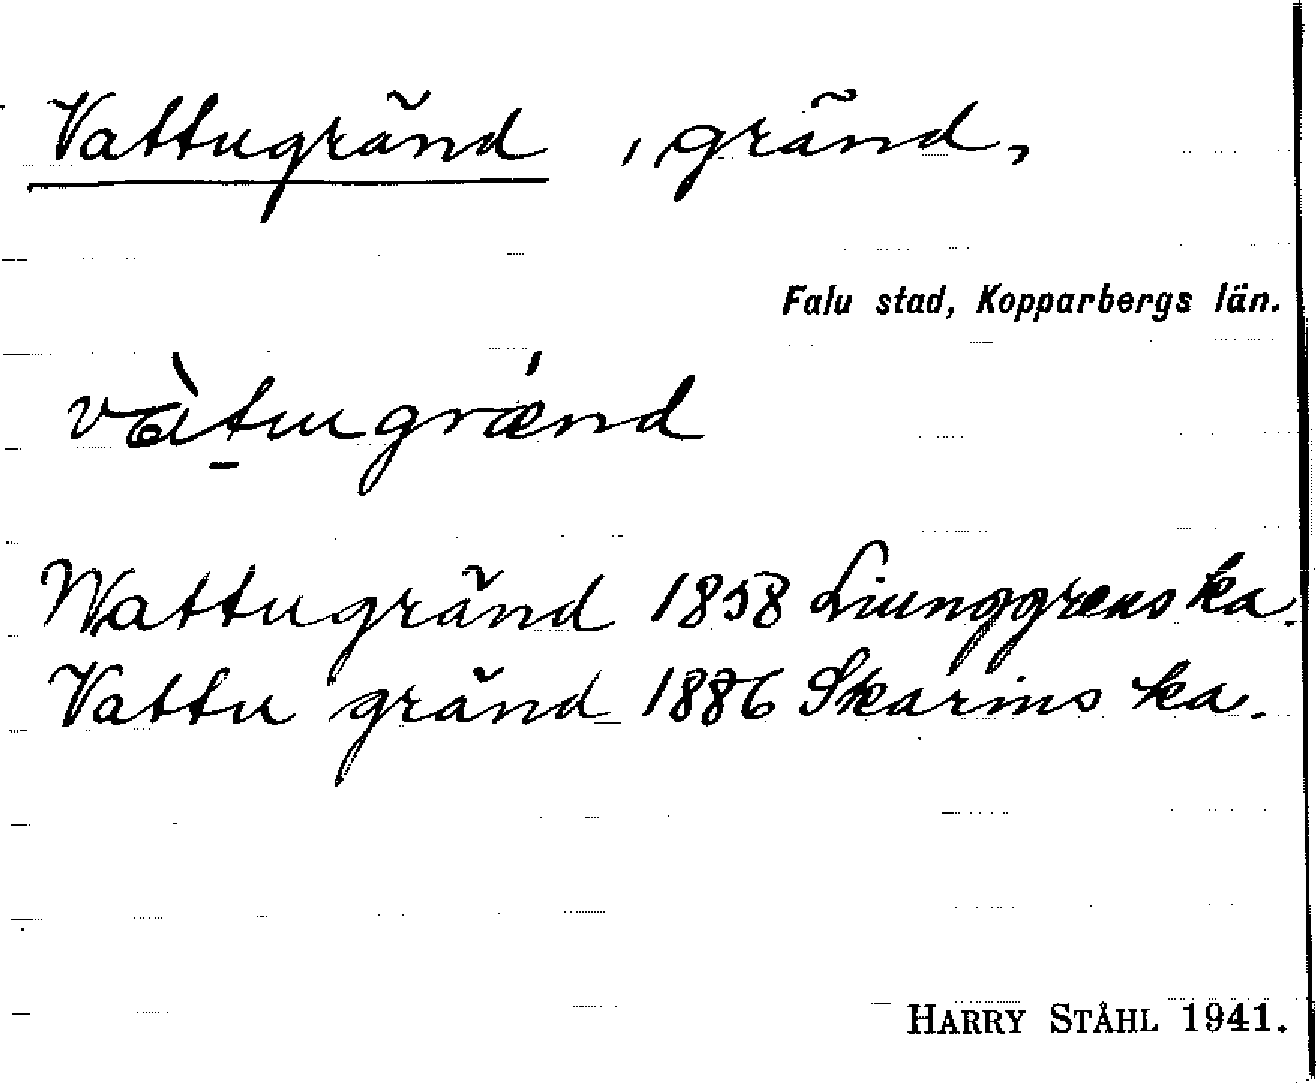 Vattugränd, gränd,
Falu stad, Kopparbergs län.
vàt̠ugrǽnd
Wattugränd 1858 Liunggrens ka.
Vattu gränd 1886 Skarins ka.
HARRY STÅHL 1941.